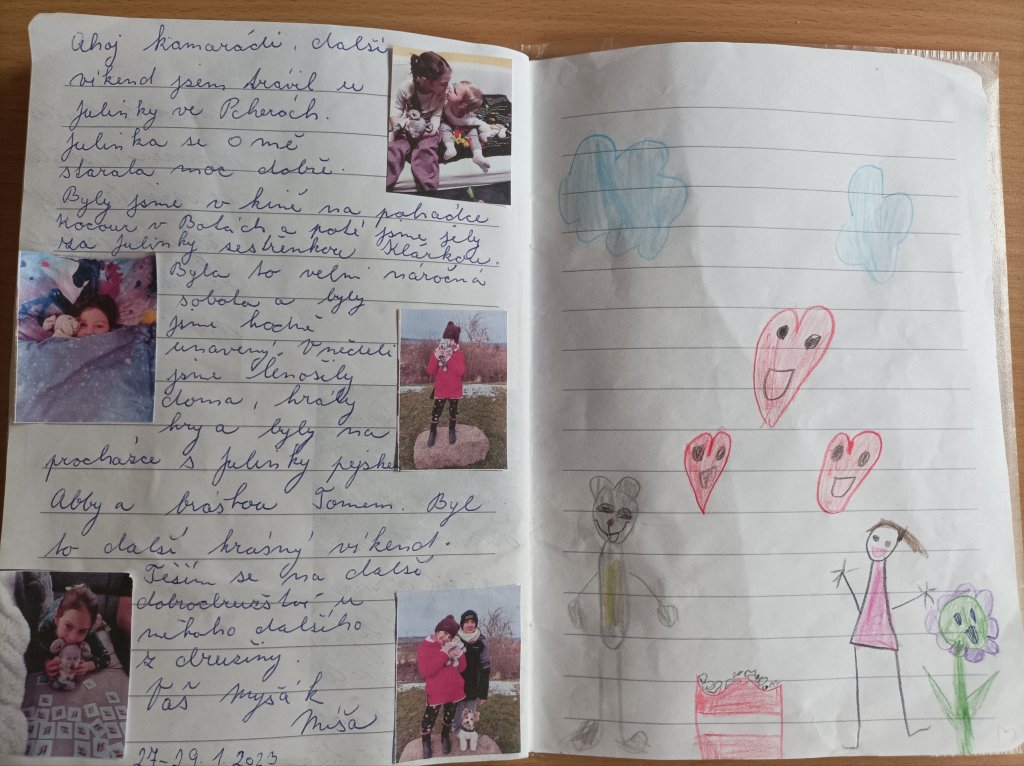 Ahoj kamarádi, další
víkend jsem trávil u
Julinky ve Pcherách.
Julinka se o mě
starala moc dobře.
Byly jsme v kině na pohádce
Kocour v Botách a poté jsme jely
za Julinky sestřenkou Klárkou.
Byla to velmi náročná
sobota a byly
jsme hodně
unavený. V neděli
jsme lenošily
doma, hrály
hry a byly na
procházce s Julinky pejske
Abby a bráškou Tomem. Byl
to další krásný víkend.
Těším se na další
dobrodružství u
někoho dalšího
z družiny.
Váš Myšák
Míša
27-29.1.2023